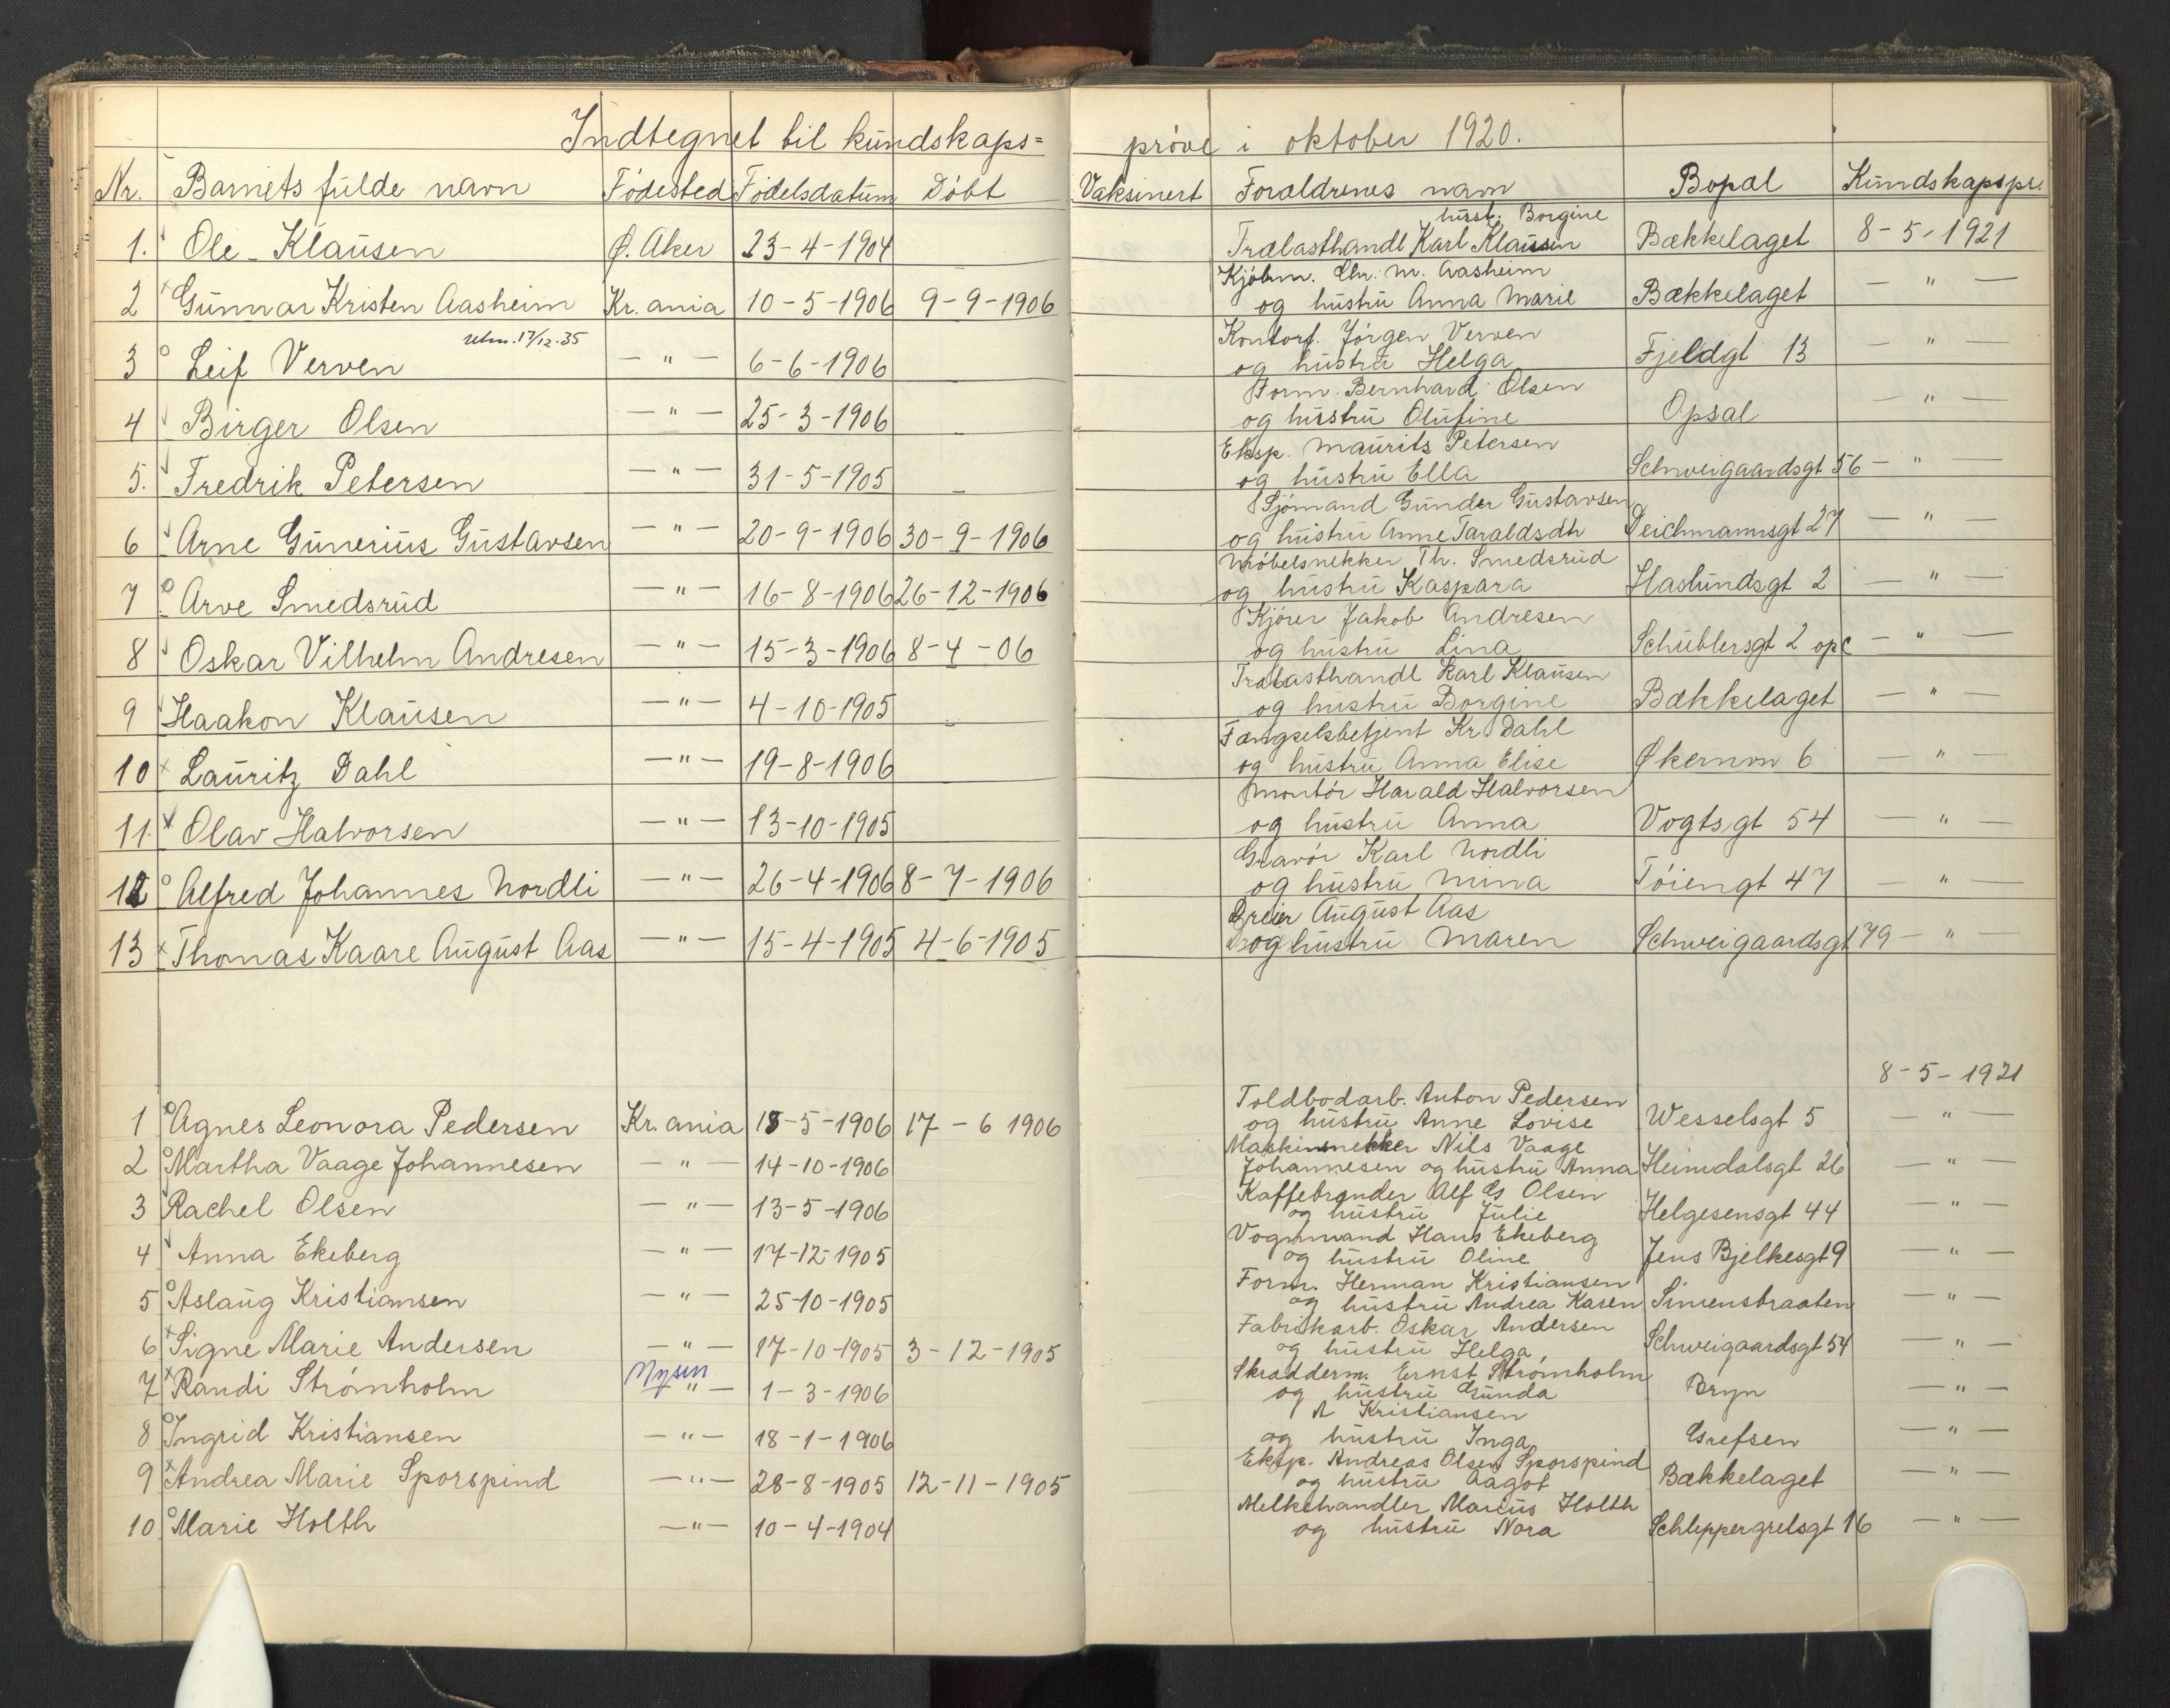 Indtegnet til kundskaps= prøve i oktober 1920.
Nr. Barnets fulde navn Fødested Fødelsdatum Døbt Vaksinert Forældrenes navn Bopæl Kundskapspr.
hust. Borgine
1. Ole Klausen Ø. Aker 23-4-1904 Trælasthandl Karl Klausen Bækkelaget 8-5-1921
Kjøbm. Chr. M. Aasheim
2 Gunnar Kristen Aasheim Kr.ania 10-5-1906 9-9-1906 og hustru Anna Marie Bækkelaget — " —
utm. 17/12.35 Kontorf. Jørgen Verven
3 Leif Verven — " — 6-6-1906 og hustru Helga Fjeldgt 13 — " —
Form. Bernhard Olsen
4 Birger Olsen — " — 25-3-1906 og hustru Olufine Opsal — " —
Eksp. Maurits Petersen
5. Fredrik Petersen — " — 31-5-1905 og hustru Ella Schweigaardsgt 56 — " —
Sjømand Gunder Gustavsen
6 Arne Gunerius Gustavsen — " — 20-9-1906 30-9-1906 og hustru Anne Taraldsdtr Deichmannsgt 27 — " —
Møbelsnekker Th. Smedsrud
7 Arve Smedsrud — " — 16-8-1906 26-12-1906 og hustru Kaspara Haslundsgt 2 — " —
Kjører Jakob Andresen
8 Oskar Vilhelm Andresen — " — 15-3-1906 8-4-06 og hustru Lina Schüblersgt 2 opC — " —
Trælasthandl Karl Klausen
9 Haakon Klausen — " — 4-10-1905 og hustru Borgine Bækkelaget — " —
Fængselsbetjent Kr. Dahl
10 Lauritz Dahl — " — 19-8-1906 og hustru Anna Elise Økernvn 6 — " —
Montør Harald Halvorsen
11. Olav Halvorsen — " — 13-10-1905 og hustru Anna Vogtsgt 54 — " —
Gravør Karl Nordli
12 Alfred Johannes Nordli — " — 26-4-1906 8-7-1906 og hustru Mina Tøiengt 47 — " —
August Aas
13 Thomas Kaare August Aas — " — 15-4-1905 4-6-1905 og hustru Maren Schweigaardsgt 79 — " —
8-5-1921
Toldbodarb. Anton Pedersen
1 Agnes Leonora Pedersen Kr.ania 15-5-1906 17-6 1906 og hustru Anne Lovise Wesselsgt 5 — " —
Maskinsnekker Nils Vaage
2 Martha Vaage Johannesen — " — 14-10-1906 Johannesen og hustru Anna Heimdalsgt 26 — " —
Kaffebrænder Alf G Olsen
3 Rachel Olsen — " — 13-5-1906 og hustru Julie Helgesensgt 44 — " —
Vognmand Hans Ekeberg
4 Anna Ekeberg — " — 17-12-1905 og hustru Oline Jens Bjelkesgt 9 — " —
Form. Herman Kristiansen
5 Aslaug Kristiansen — " — 25-10-1905 og hustru Andrea Karen Simensbraaten — " —
Fabrikarb. Oskar Andersen
6 Signe Marie Andersen — " — 17-10-1905 3-12-1905 og hustru Helga Schweigaardsgt 54 — " —
Mysen Skrædderm. Ernst Strømholm
7 Randi Strømholm — " — 1-3-1906 og hustru Gunda Bryn — " —
A Kristiansen
8 Ingrid Kristiansen — " — 18-1-1906 og hustru Inga Grefsen — " —
Eksp. Andreas Olsen Sporspind
9 Andrea Marie Sporspind — " — 28-8-1905 12-11-1905 og hustru Aagot Bækkelaget — " —
Melkehandler Marius Holth
10 Marie Holth — " — 10-4-1904 og hustru Nora Schleppegrelsgt 16 — " —